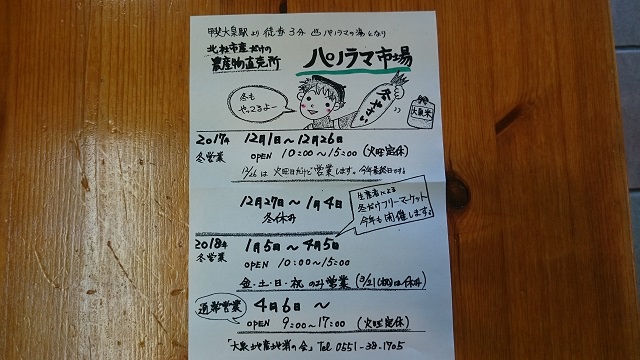 甲斐大泉駅より徒歩3分 パノラマの湯となり
北杜市産だけの
農産物直売所
パノラマ市場
冬も
やってるよー
冬やさい
大泉米
2017年
冬営業
12月1日〜12月26日
OPEN 10:00〜15:00 (火曜定休)
12/26は火曜日だけど営業します。今年最終日です。
12月27日〜1月4日
冬休み
生産者による
冬だけフリーマーケット
今年も開催します。
2018年
冬営業
1月5日〜4月5日
OPEN 10:00〜15:00
金・土・日・祝のみ営業 (3/21(祝)は休み)
通常営業
4月6日〜
OPEN 9:00〜17:00 (火曜定休)
「大泉地産地消の会」Tel 0551-38-1705